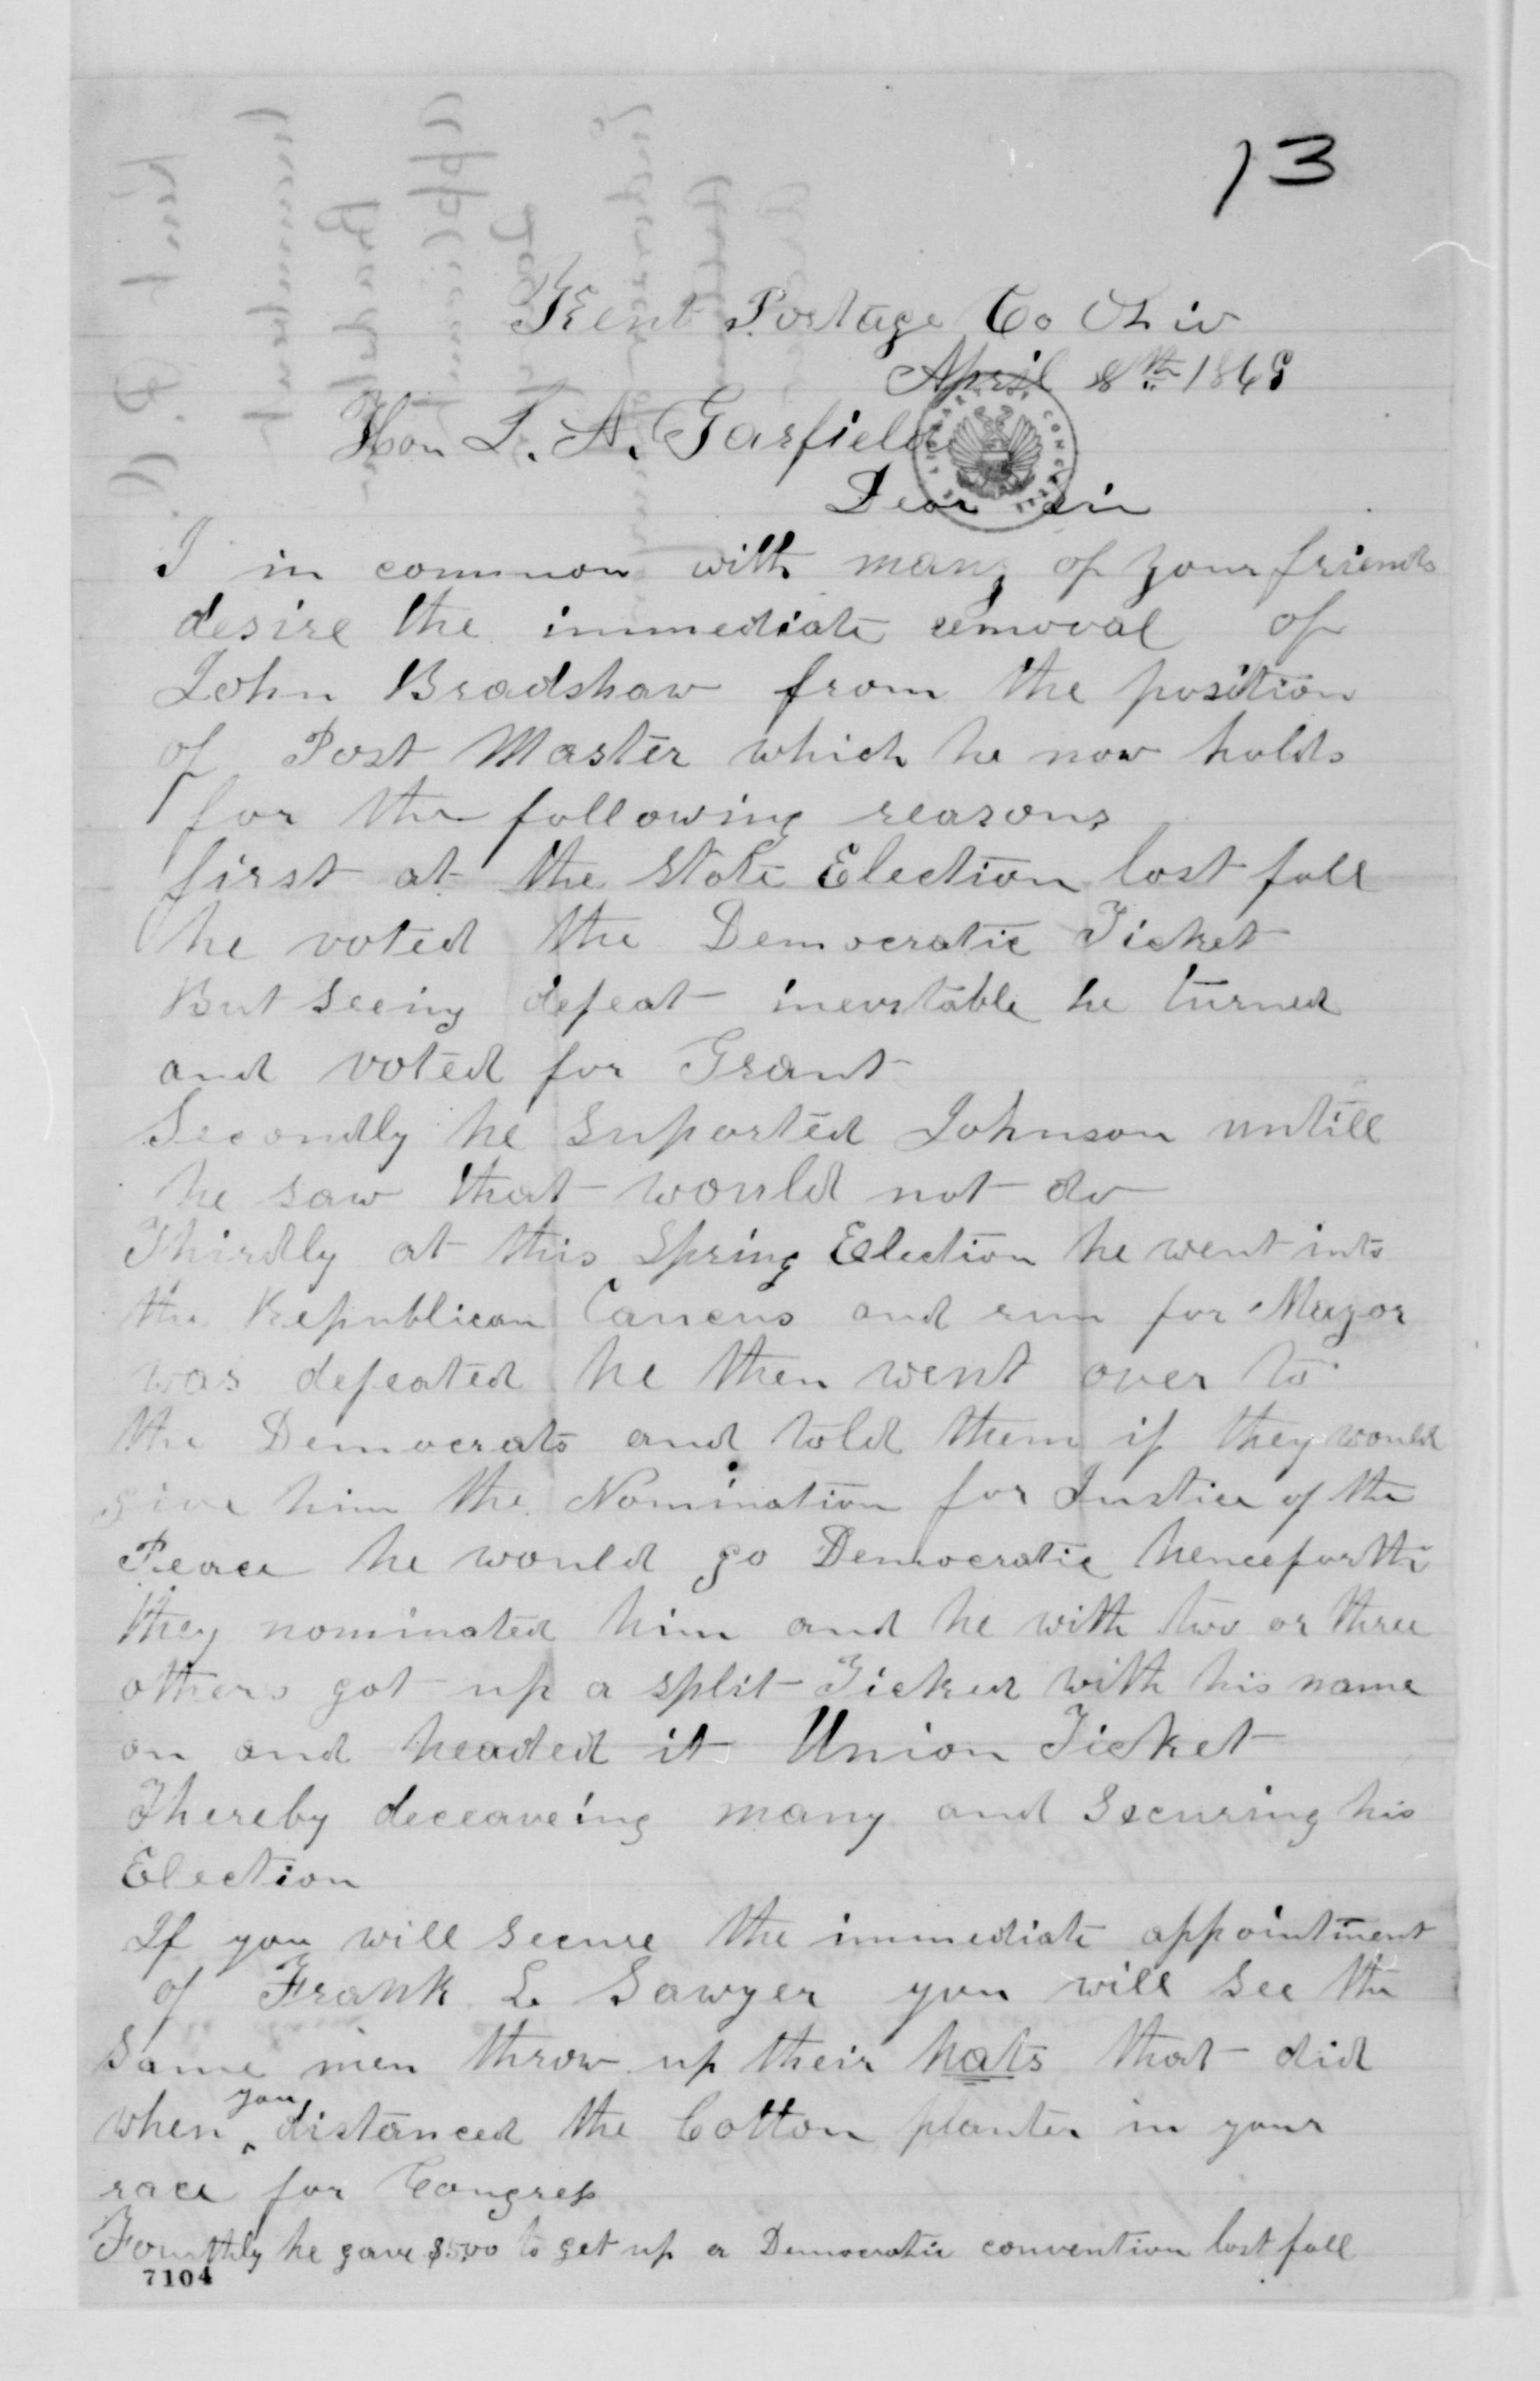 13
Kent Portage Co Ohio
April 8th 1869
Hon J. A. Garfield
Dear Sir
I in common with many of your friends
desire the immediate removal of
John Bradshaw from the position
of Post Master which he now holds
for the following reasons
first at the State Election last fall
he voted the Democratic Ticket
But seeing defeat inevitable he turned
and voted for Grant
Secondly he suported Johnson untill
he saw that would not do
Thirdly at this Spring Election he went into
the Republican Caucus and run for Mayor
was defeated he then went over to
the Democrats and told them if they would
give him the Nomination for Justice of the
Peace he would go Democratic henceforth
they nominated him and he with two or three
others got up a split Ticked with his name
on and headed it Union Ticket
Thereby deceaveing many and Securing his
Election
If you will secure the immediate appointment
of Frank L. Sawyer you will see the
same men throw up their hats that did
when you distanced the Cotton planter in your
race for Congress
Fourthly he gave $5.00 to get up a Democratic convention last fall
7104